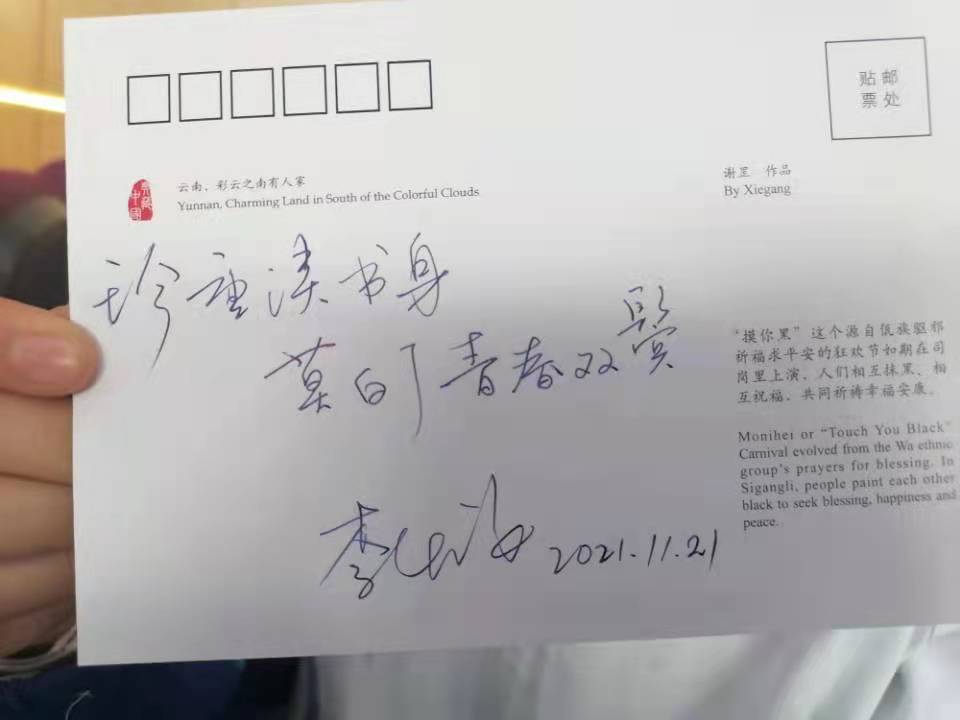 贴邮
票处
云南、彩云之南有人家
Yunnan, Charming Land in South of the Colorful Clouds
谢罡 作品
By Xiegang
珍重读书身
莫白了青春双鬓
“摸你黑”这个源自佤族驱邪
祈福求平安的狂欢节如期在司
岗里上演，人们相互抹黑、相
互祝福，共同祈祷幸福安康。
Monihei or “Touch You Black”
Carnival evolved from the Wa ethnic
group’s prayers for blessing. In
Sigangli, people paint each other
black to seek blessing, happiness and
peace.
李 2021.11.21